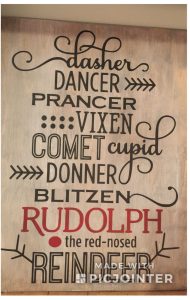 dasher
DANCER
PRANCER
VIXEN
COMET cupid
DONNER
BLITZEN
RUDOLPH
the red-nosed
REINDEER
MADE WITH
PICJOINTER